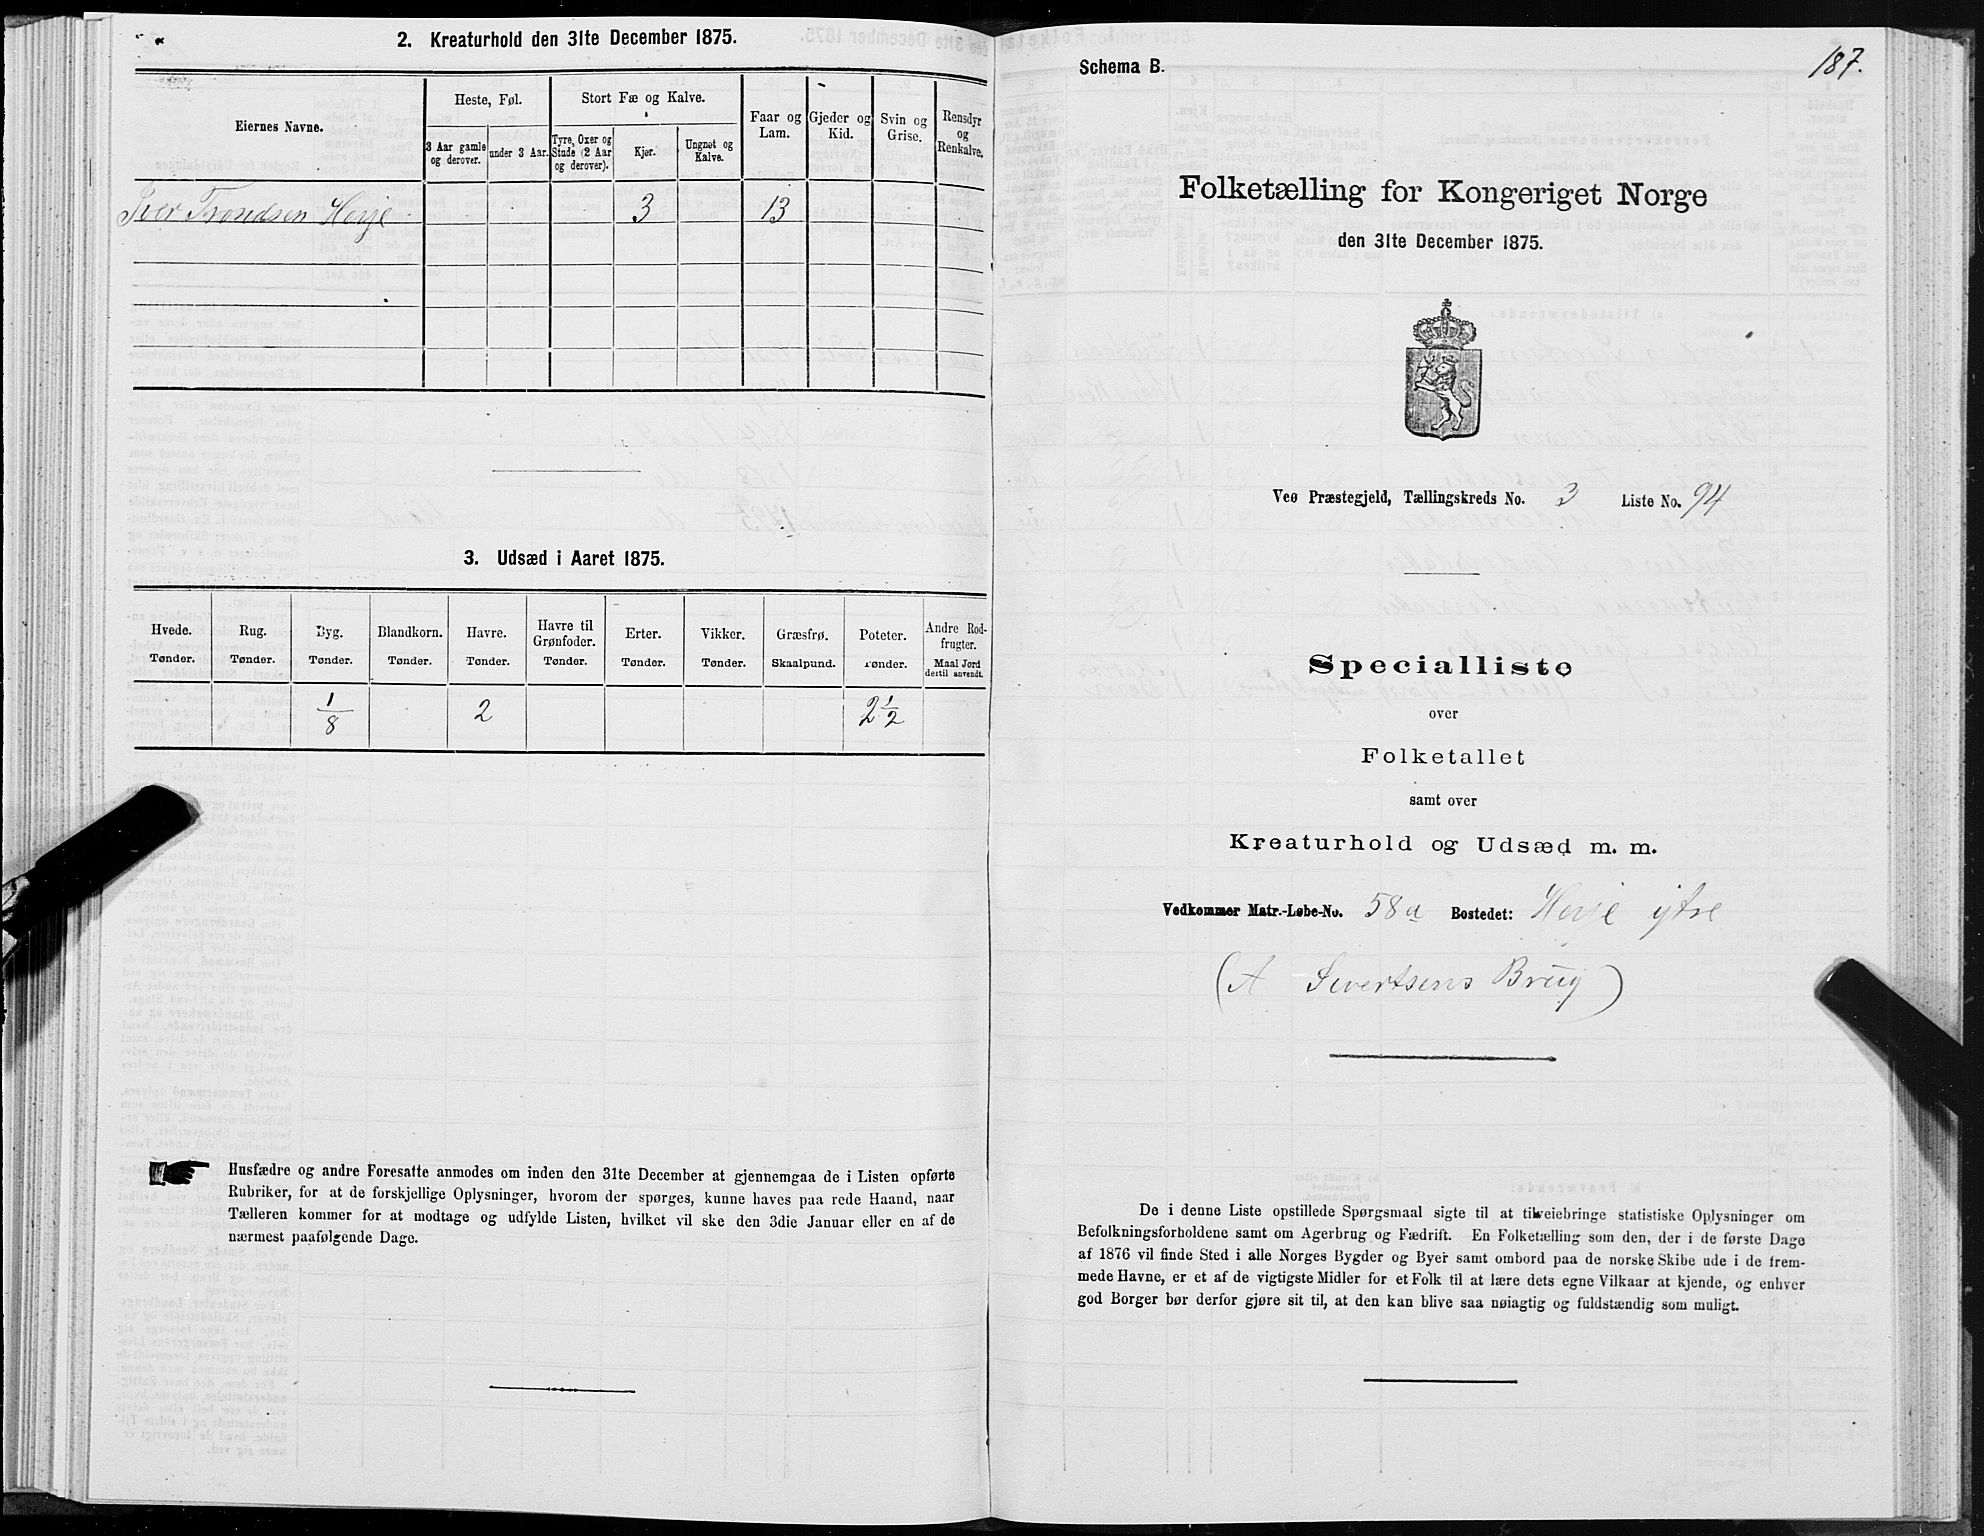 2. Kreaturhold den 31te December 1875.
Eiernes Navne.
Heste, Føl.
Stort Fæ og Kalve.
Faar og Lam.
Gjeder og Kid.
Svin og Grise.
Rensdyr og Renkalve.
3 Aar gamle og derover.
under 3 Aar.
Tyre, Oxer og Stude (2 Aar og derover).
Kjør.
Ungnøt og Kalve.
Iver Trondsen Herje 3 13
3. Udsæd i Aaret 1875.
Hvede. Rug. Byg. Blandkorn. Havre. Havre til Grønfoder. Erter. Vikker. Græsfrø. Poteter. Andre Rodfrugter.
Tønder. Tønder. Tønder. Tønder. Tønder. Tønder. Tønder. Tønder. Skaalpund. Tønder. Maal Jord dertil anvendt.
1/8 2 2 1/2
Husfædre og andre Foresatte anmodes om inden den 31te December at gjennemgaa de i Listen opførte
Rubriker, for at de forskjellige Oplysninger, hvorom der spørges, kunne haves paa rede Haand, naar
Tælleren kommer for at modtage og udfylde Listen, hvilket vil ske den 3die Januar eller en af de
nærmest paafølgende Dage.
187.
Schema B.
Folketælling for Kongeriget Norge
den 31te December 1875.
Veø Præstegjeld, Tællingskreds No. 3 Liste No. 94
Specialliste
over
Folketallet
samt over
Kreaturhold og Udsæd m. m.
Vedkommer Matr.-Løbe-No. 58a Bostedet: Herje ytre
(A Sivertsens Brug)
De i denne Liste opstillede Spørgsmaal sigte til at tilveiebringe statistiske Oplysninger om
Befolkningsforholdene samt om Agerbrug og Fædrift. En Folketælling som den, der i de første Dage
af 1876 vil finde Sted i alle Norges Bygder og Byer samt ombord paa de norske Skibe ude i de frem-
mede Havne, er et af de vigtigste Midler for et Folk til at lære dets egne Vilkaar at kjende, og enhver
god Borger bør derfor gjøre sit til, at den kan blive saa nøiagtig og fuldstændig som muligt.